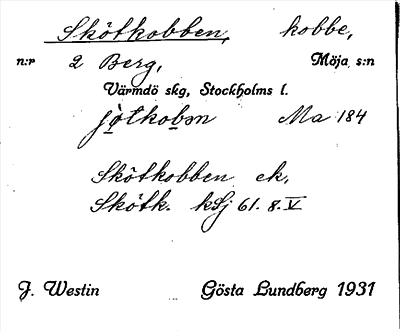 Skötkobben, kobbe,
n:r 2 Berg, Möja s:n
Värmdö skg, Stockholms l.
jö̀tkobən Ma 184
Skötkobben ek,
Skötk. kSj 61. 8. V
J. Westin Gösta Lundberg 1931